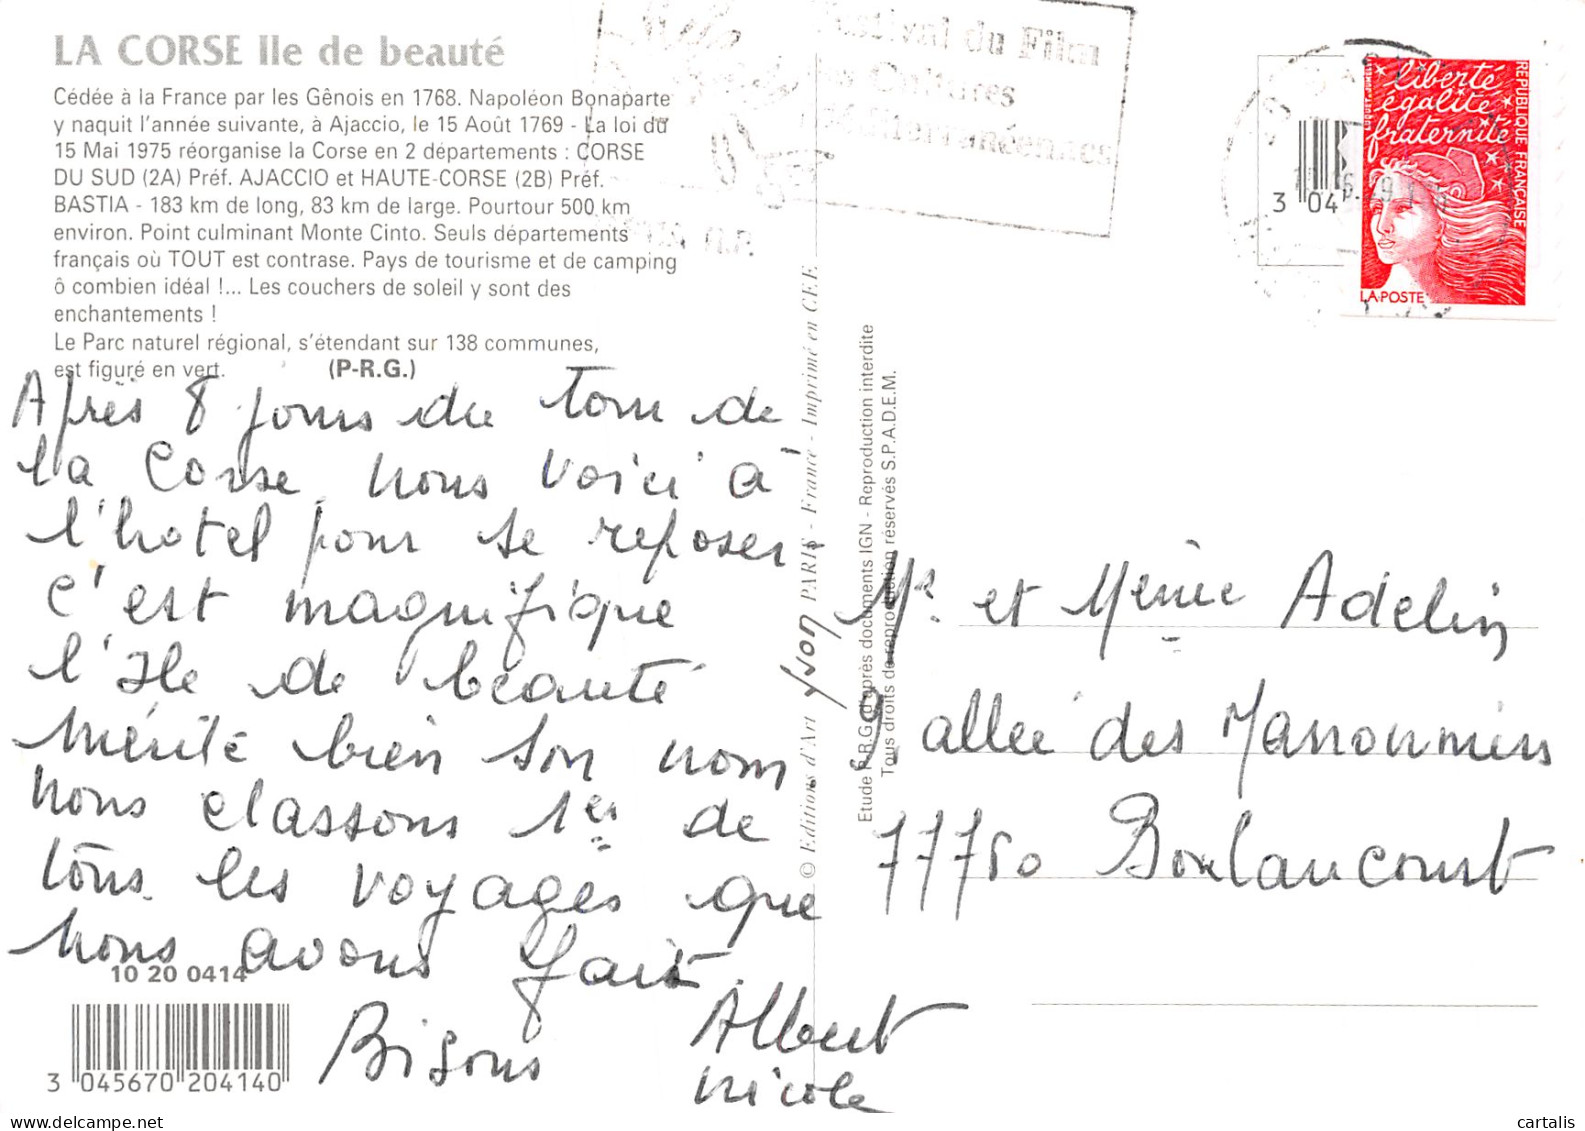 LA CORSE Ile de beauté
Cédée à la France par les Gênois en 1768. Napoléon Bonaparte
y naquit l'année suivante, à Ajaccio, le 15 Août 1769 - La loi du
15 Mai 1975 réorganise la Corse en 2 départements : CORSE
DU SUD (2A) Préf. AJACCIO et HAUTE-CORSE (2B) Préf.
BASTIA - 183 km de long, 83 km de large. Pourtour 500 km
environ. Point culminant Monte Cinto. Seuls départements
français où TOUT est contrase. Pays de tourisme et de camping
ô combien idéal !... Les couchers de soleil y sont des
enchantements !
Le Parc naturel régional, s'étendant sur 138 communes,
est figuré en vert. (P-R.G.)
Après 8 jours du tour de
la Corse, nous voici à
l'hotel pour se reposer
c'est magnifique
l'Ile de beauté
mérite bien son nom
nous classons 1er de
tous les voyages que
nous avons fait.
Bisous Albert
Nicole
10 20 0414
3 045670 204140
© Editions d'Art Yvon PARIS - France - Imprimé en CEE
Etude P.R.G. d'après documents IGN - Reproduction interdite
Tous droits de reproduction réservés S.P.A.D.E.M.
Festival du Film
des Cultures
Méditerranéennes
3 04
liberté
égalité
fraternité
RÉPUBLIQUE FRANÇAISE
LA POSTE
Mr et Adelin
9 allée des
77760 Boulancourt
cartalis